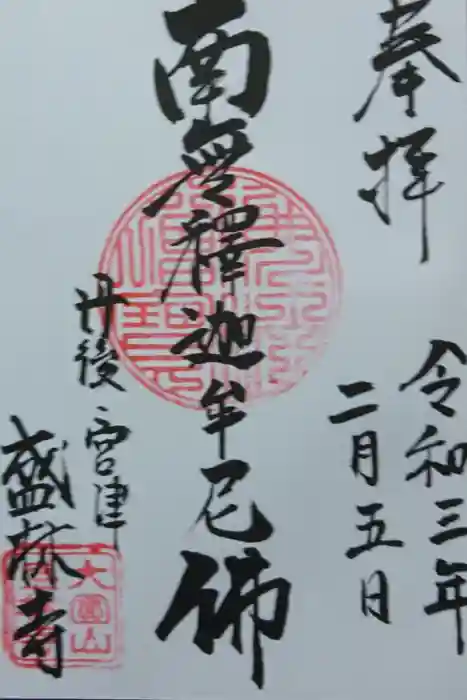 奉拝
令和三年
二月五日
南無釋迦牟尼佛
丹後 宮津
盛林寺
大圓山